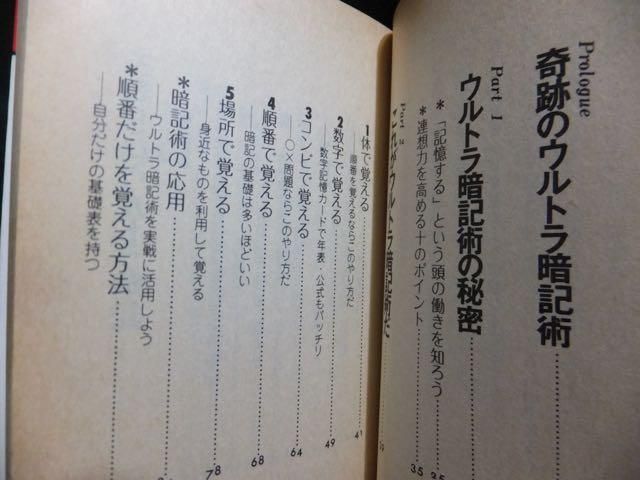 Prologue
奇跡のウルトラ暗記術
Part 1
ウルトラ暗記術の秘密
*「記憶する」という頭の働きを知ろう 35
*連想力を高める十のポイント 35
Part 2
これがウルトラ暗記術だ
1 体で覚える 41
——順番を覚えるならこのやり方だ
2 数字で覚える 49
——数字記憶カードで年表・公式もバッチリ
3 コンビで覚える 64
——○×問題ならこのやり方だ
4 順番で覚える 68
——暗記の基礎は多いほどいい
5 場所で覚える 78
——身近なものを利用して覚える
*暗記術の応用
——ウルトラ暗記術を実戦に活用しよう
*順番だけを覚える方法
——自分だけの基礎表を持つ